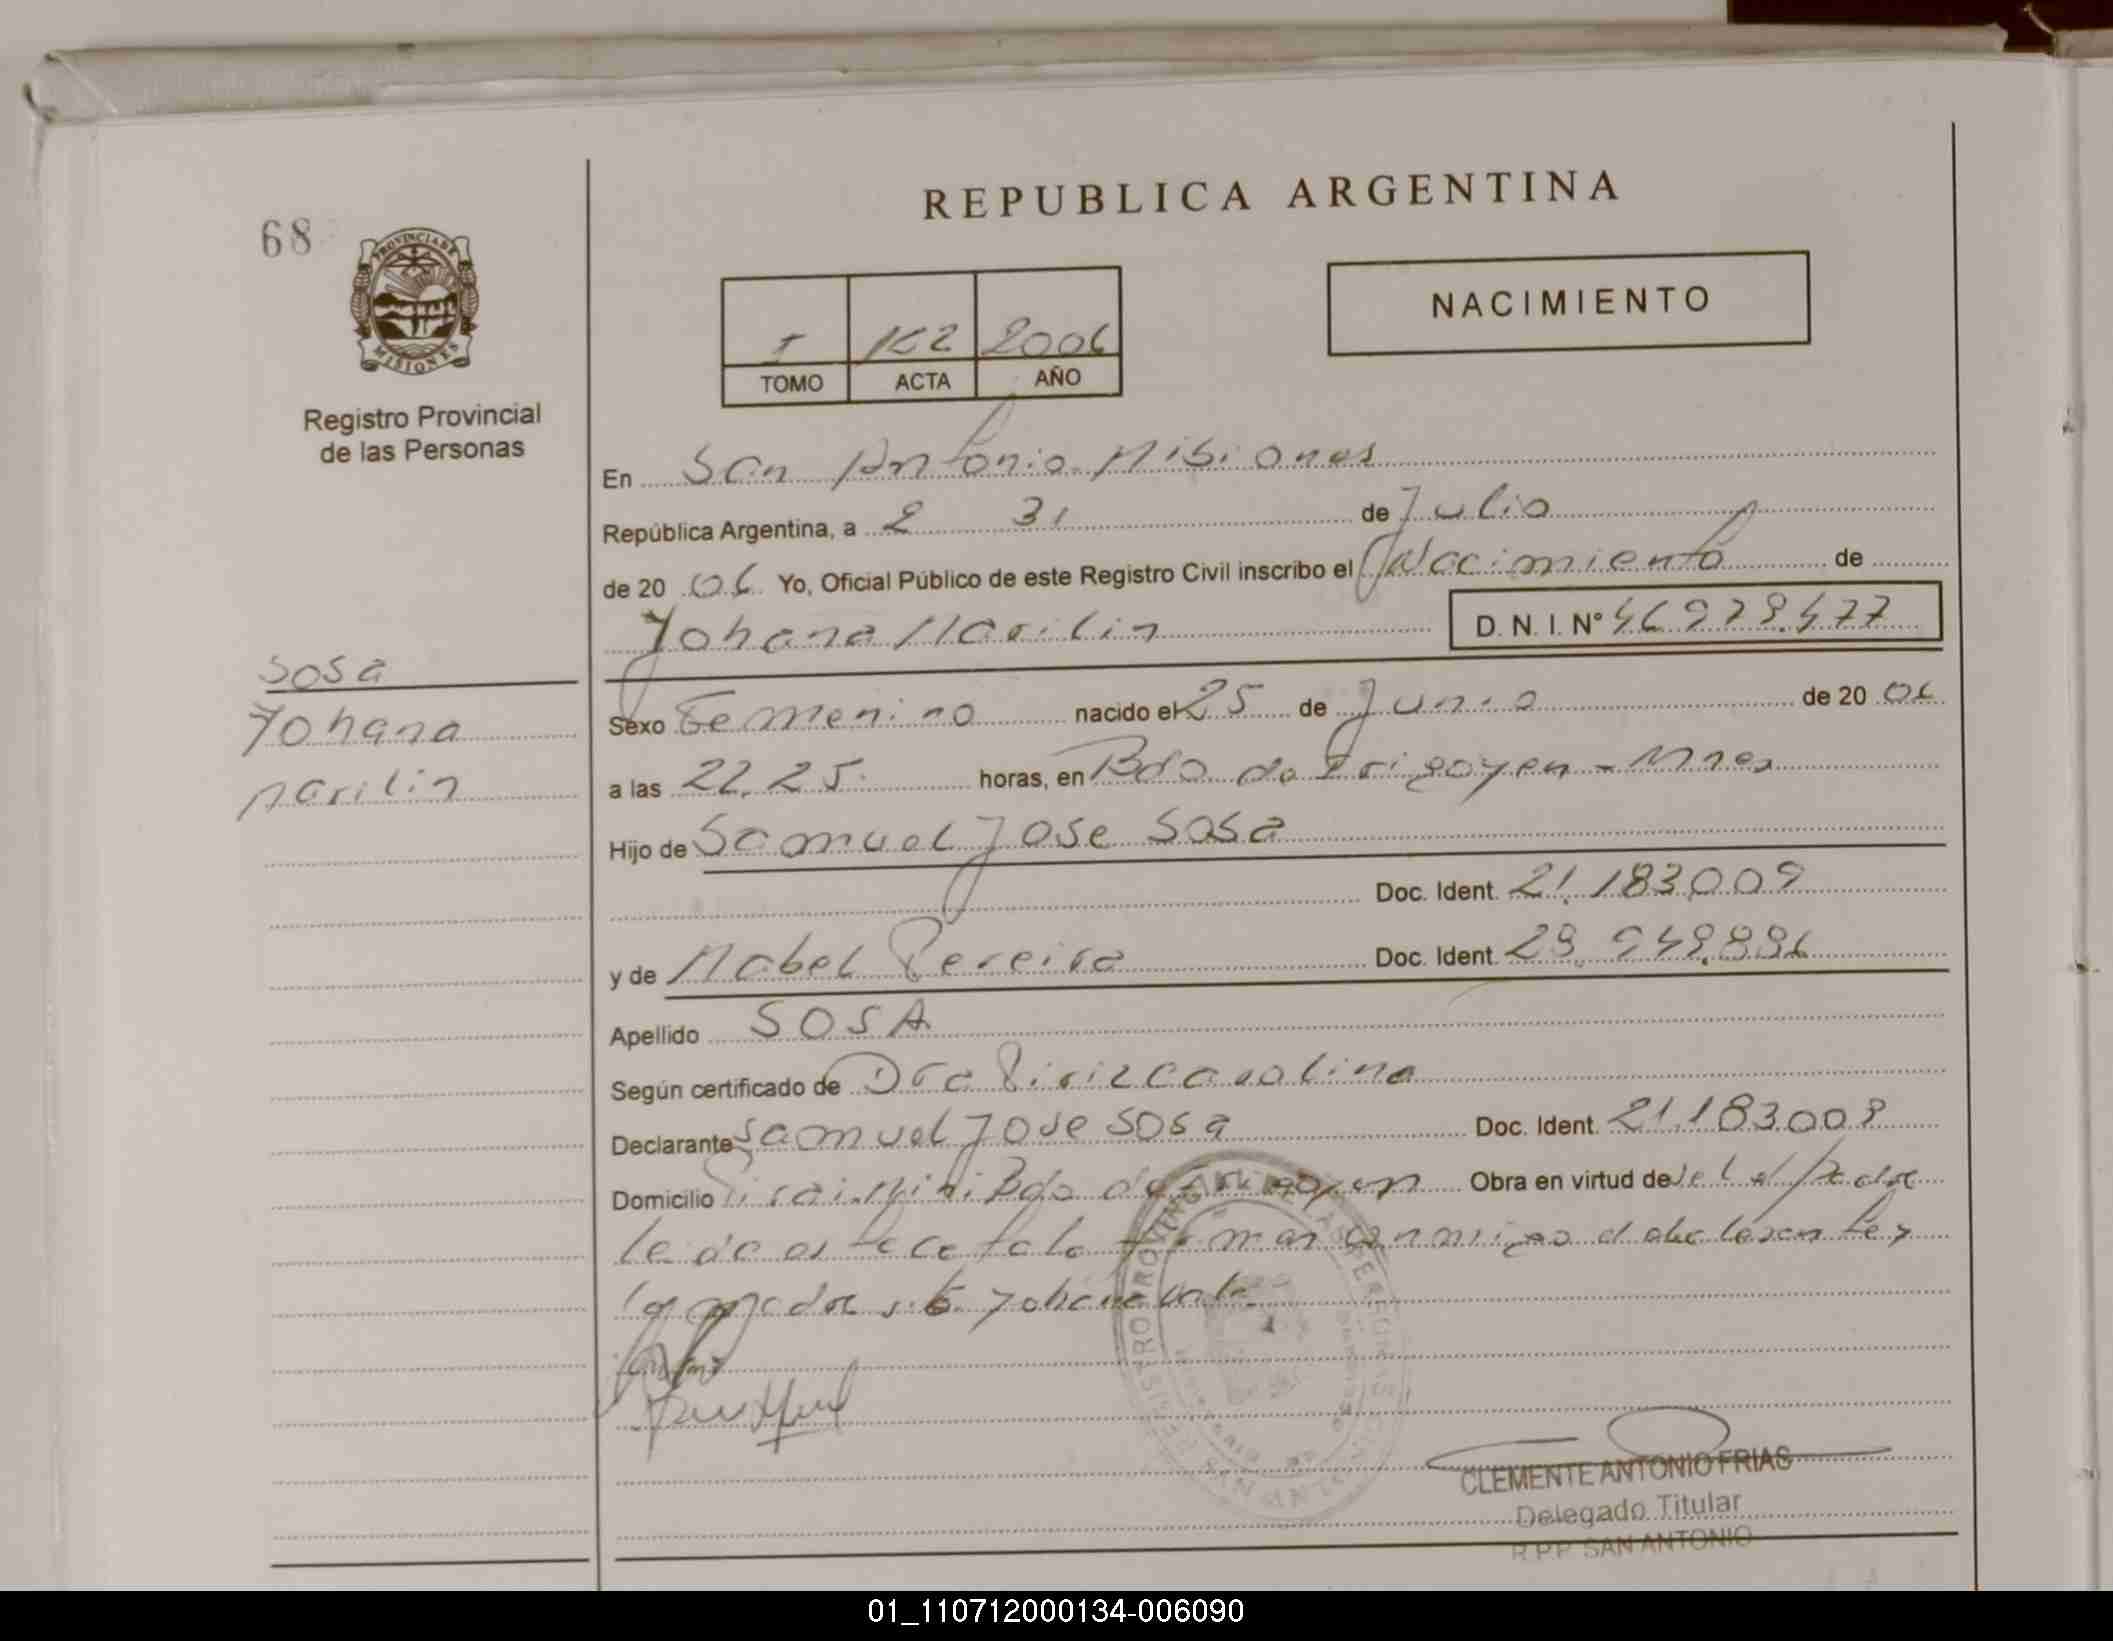 REPUBLICA ARGENTINA
68
PROVINCIA DE
MISIONES
Registro Provincial
de las Personas
NACIMIENTO
I 162 2006
TOMO ACTA AÑO
En San Antonio Misiones
República Argentina, a 2 31 de Julio
de 20 06 Yo, Oficial Público de este Registro Civil inscribo el Nacimiento de
Yohana Marilin D. N. I. Nº
Sosa
Yohana
Marilin
Sexo Femenino nacido el 25 de Junio de 20 06
a las 22.25 horas, en Bdo de Irigoyen - Mnes
Hijo de Samuel Jose Sosa
Doc. Ident. 21.183.009
y de Mabel Pereira Doc. Ident.
Apellido SOSA
Según certificado de Dra Piriz Carolina
Declarante Samuel Jose Sosa Doc. Ident.
Domicilio Bdo de Irigoyen Obra en virtud de
CLEMENTE ANTONIO FRIAS
Delegado Titular
R.P.P. SAN ANTONIO
01_110712000134-006090